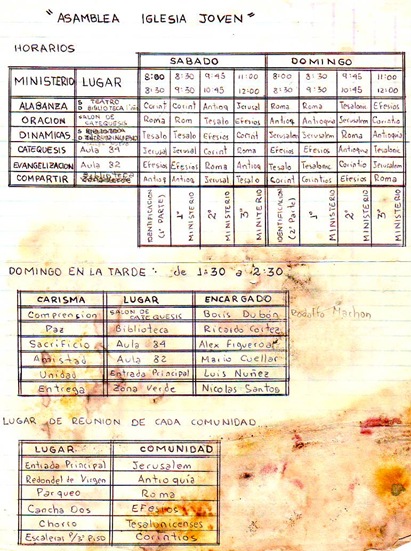 "ASAMBLEA IGLESIA JOVEN"
HORARIOS
SABADO DOMINGO
MINISTERIO LUGAR 8:00 8:30 9:45 11:00 8:00 8:30 9:45 11:00
8:30 9:30 10:45 12:00 8:30 9:30 10:45 12:00
ALABANZA S TEATRO D BIBLIOTECA Corint Corint Antioq Jerusal Roma Roma Tesalonc Efesios
ORACION SALON DE CATEQUESIS Roma Rom Tesalo Efesios Antioq Antioquia Jerusalem Corintio
DINAMICAS S BIBLIOTECA Tesalo Tesalo Efesios Corint Jerusalem Jerusalem Roma Antioq
CATEQUESIS Aula 34 Jerusal Jerusal Corint Roma Efesios Efesios Antioquia Tesalonc
EVANGELIZACION Aula 32 Efesios Efesios Roma Antioq Tesalo Tesalonc Corintio Jerusalem
COMPARTIR Antioq Antioq Jerusal Tesalo Corint Corintios Efesios Roma
IDENTIFICACION (1ª PARTE) 1º MINISTERIO 2º MINISTERIO 3º MINISTERIO IDENTIFICACION (2ª Parte) 1º MINISTERIO 2º MINISTERIO 3º MINISTERIO
DOMINGO EN LA TARDE: de 1:30 a 2:30
CARISMA LUGAR ENCARGADO
Comprension SALON DE CATEQUESIS Boris Dubón Rodolfo Machon
Paz Biblioteca Ricardo Cortez
Sacrificio Aula 34 Alex Figueroa
Amistad Aula 32 Mario Cuellar
Unidad Entrada Principal Luis Nuñez
Entrega Zona Verde Nicolas Santos
LUGAR DE REUNION DE CADA COMUNIDAD
LUGAR COMUNIDAD
Entrada Principal Jerusalem
Redondel de Virgen Antioquia
Parqueo Roma
Cancha Dos Efesios
Chorro Tesalonicenses
Escaleras P/3º Piso Corintios